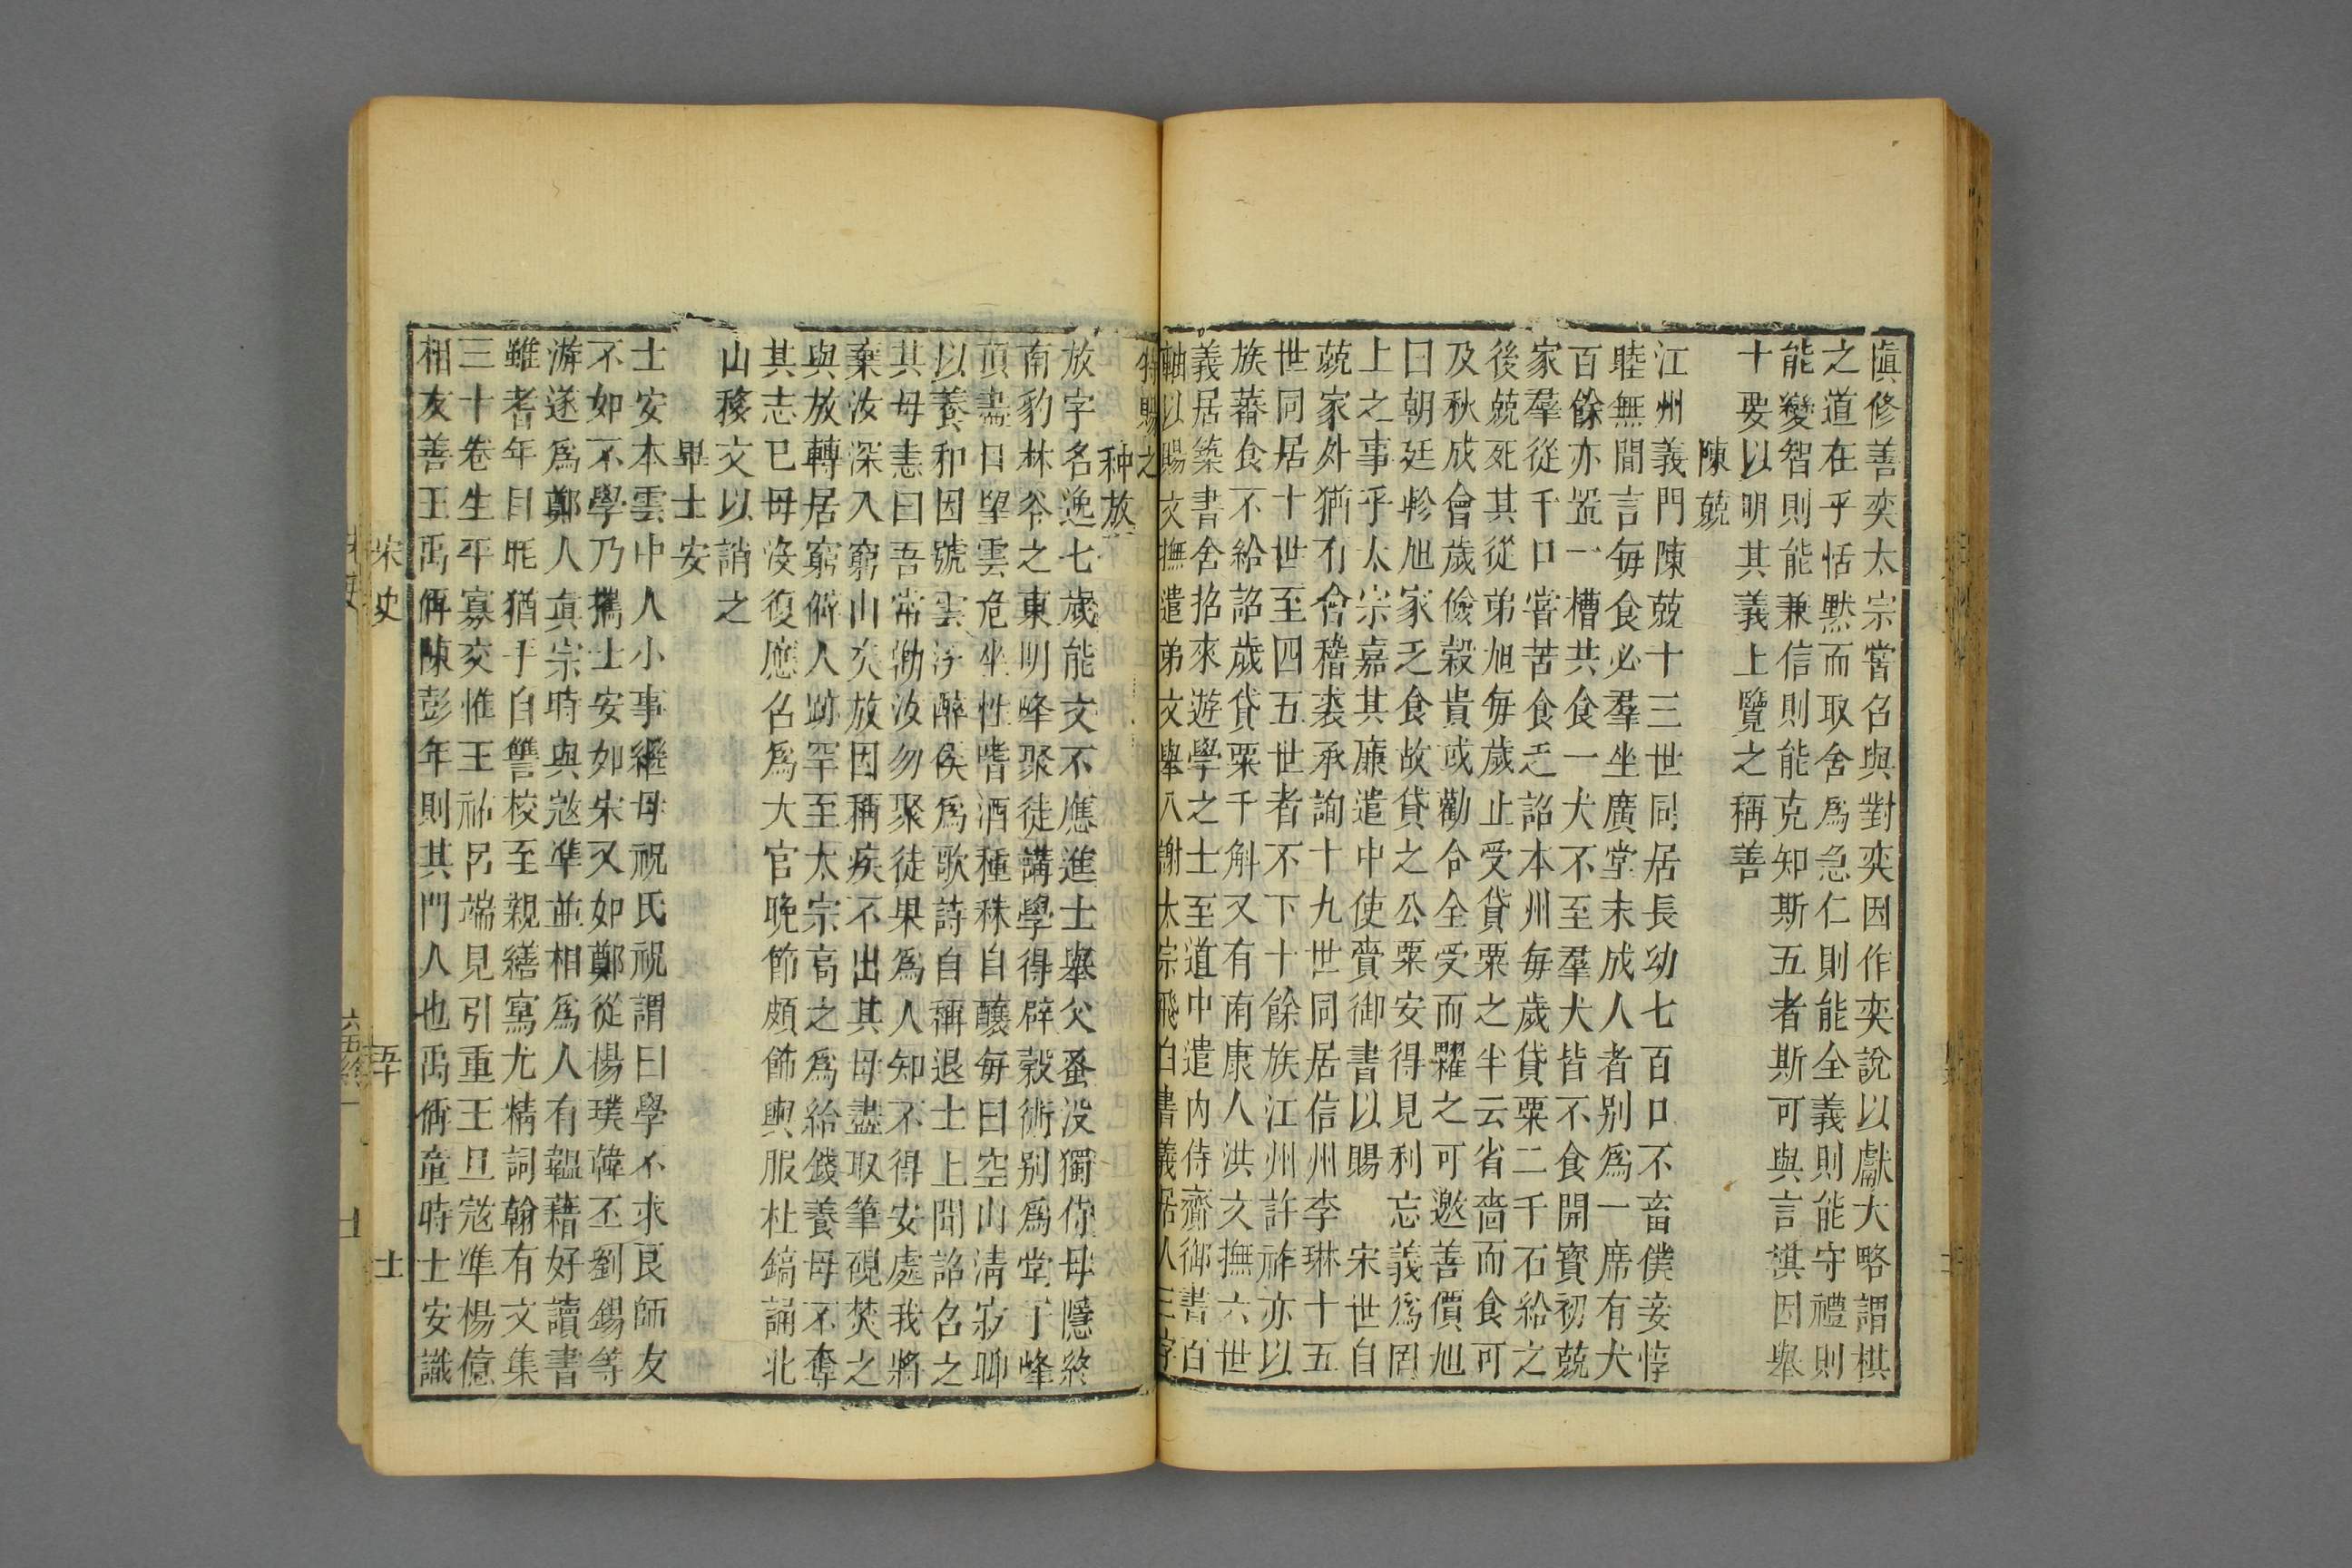 愼修善奕太宗嘗召與對奕因作奕說以獻大略謂棋
之道在乎恬黙而取舍爲急仁則能全義則能守禮則
能變智則能兼信則能克知斯五者斯可與言淇因舉
十要以明其義上覽之稱善
陳兢
江州義門陳兢十三世同居長幼七百口不畜僕妾惇
睦無間言每食必羣坐廣堂未成人者别爲一席有犬
百餘亦置一槽共食一犬不至羣犬皆不食開寳初兢
家羣從千口嘗苦食乏詔本州每歲貸粟二千石給之
後兢死其從弟旭每歲止受貸粟之半云省嗇而食可
及秋成會歲儉穀貴或勸合全受而糶之可邀善價旭
曰朝廷軫旭家乏食故貸之公粟安得見利忘義爲罔
上之事乎太宗嘉其廉遣中使賫御書以賜　宋世自
兢家外猶有會稽裘承詢十九世同居信州李琳十五
世同居十世至四五世者不下十餘族江州許祚亦以
族蕃食不給詔歲貸粟千斛又有南康人洪文撫六世
義居築書舍招來遊學之士至道中遣内侍齎御書百
軸以賜文撫遣弟文舉入謝太宗飛白書義居人三字
特賜之
种放
放字名逸七歲能文不應進士舉父蚤没獨侍母隱終
南豹林谷之東明峰聚徒講學得辟穀術别爲堂于峰
頂盡日望雲危坐性嗜酒種秫自釀每曰空山清寂聊
以養和因號雲溪醉侯爲歌詩自稱退士上聞詔召之
其母恚曰吾常勸汝勿聚徒果爲人知不得安處我將
棄汝深入窮山矣放因稱疾不出其母盡取筆硯焚之
與放轉居窮僻人跡罕至太宗高之爲給錢養母不奪
其志已母沒復應召爲大官晚節頗飾輿服杜鎬誦北
山移文以誚之
畢士安
士安本雲中人小事繼母祝氏祝謂曰學不求良師友
不如不學乃攜士安如宋又如鄭從楊璞韓丕劉錫等
游遂爲鄭人真宗時與宼準並相爲人有韞藉好讀書
雖耆年目眊猶手自讐校至親繕寫尤精詞翰有文集
三十卷生平寡交惟王祐呂端見引重王旦宼準楊億
相友善王禹偁陳彭年則其門人也禹偁童時士安識
宋史